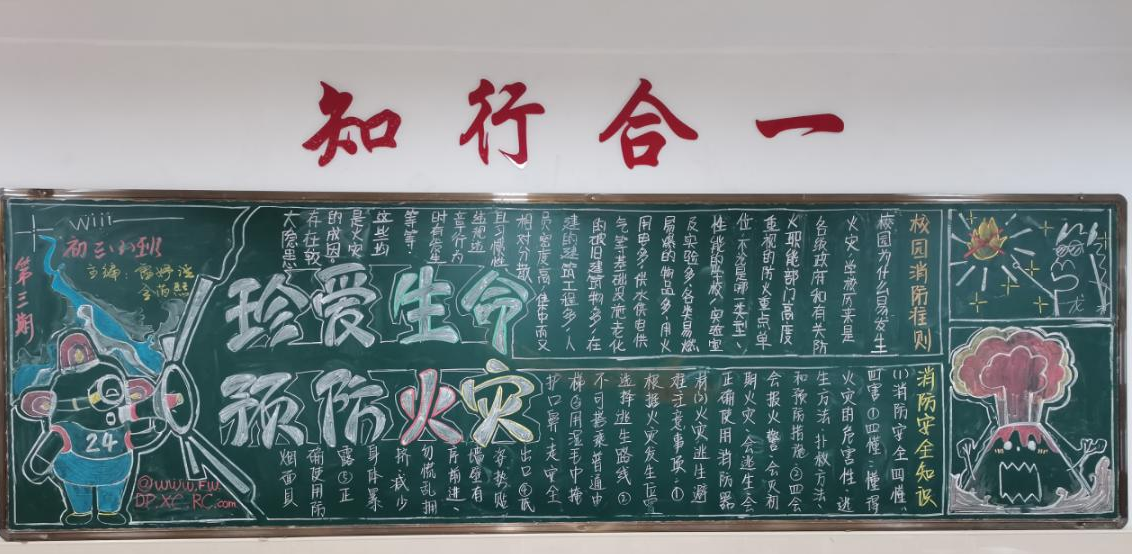 知行合一
第三期
wiii
初三
珍爱生命
预防火灾
校园消防准则
校园为什么易发生
火灾,学校历来是
各级政府和有关防
火职能部门高度
重视的防火重点单
位,不论是哪一类型、
性能的学校,实验室
及实验多,各类易燃
易爆的物品多,用火
用电多,供水供电供
气等基础设施老化
的破旧建筑物多,在
建的建筑工程多,人
员密度高,集中而又
相对分散,
且习惯性
违规违
章行为
时有发生
等等,
这些均
是火灾
的成因
存在较
大隐患
消防安全知识
(1)消防安全四懂、
四会①四懂:懂得
火灾的危害性、逃
生方法、扑救方法、
和预防措施。②四会
会报火警、会灭初
期火灾、会逃生、会
正确使用消防器
材(2)火灾逃生避
难注意事项:①
根据火灾发生位置
选择逃生路线②
不可搭乘普通电
梯③用湿毛巾掩
护口鼻,走安全
出口④低
姿势贴
墙壁有
序前进,
勿慌乱拥
挤,减少
身体暴
露⑤正
确使用防
烟面具
24
@www.FW.
DP.XC.RC.com